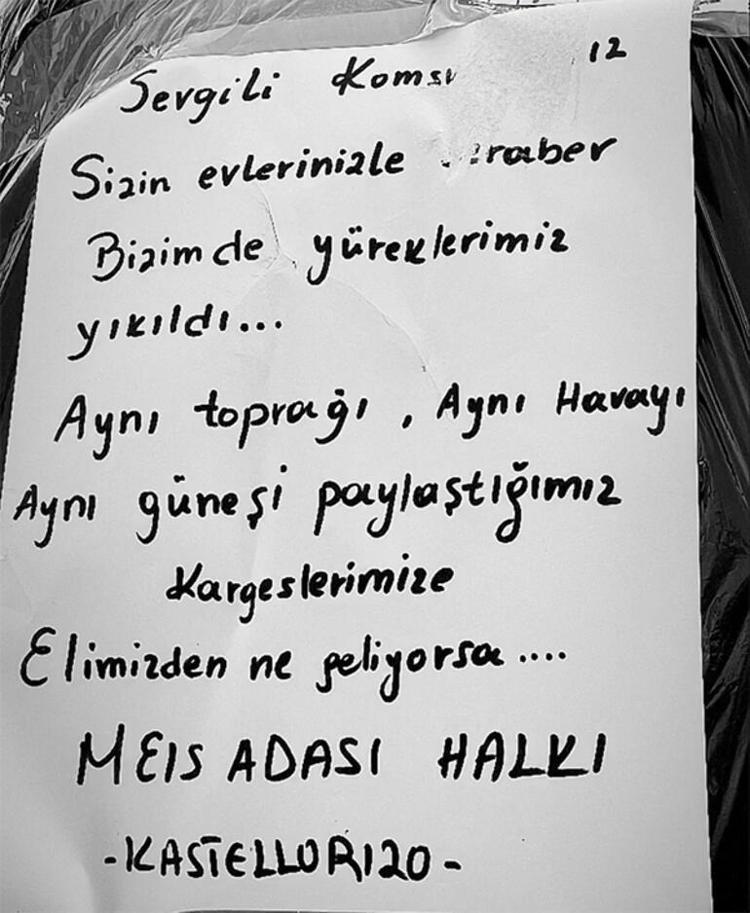 12
Sevgili Komsı
Sizin evlerinizle raber
Bizimde yüreklerimiz
yıkıldı...
Aynı toprağı, Aynı Havayı
Aynı güneşi paylaştığımız
Kargeslerimize
Elimizden ne geliyorsa....
MEIS ADASI HALKI
-KASTELLORIZO-